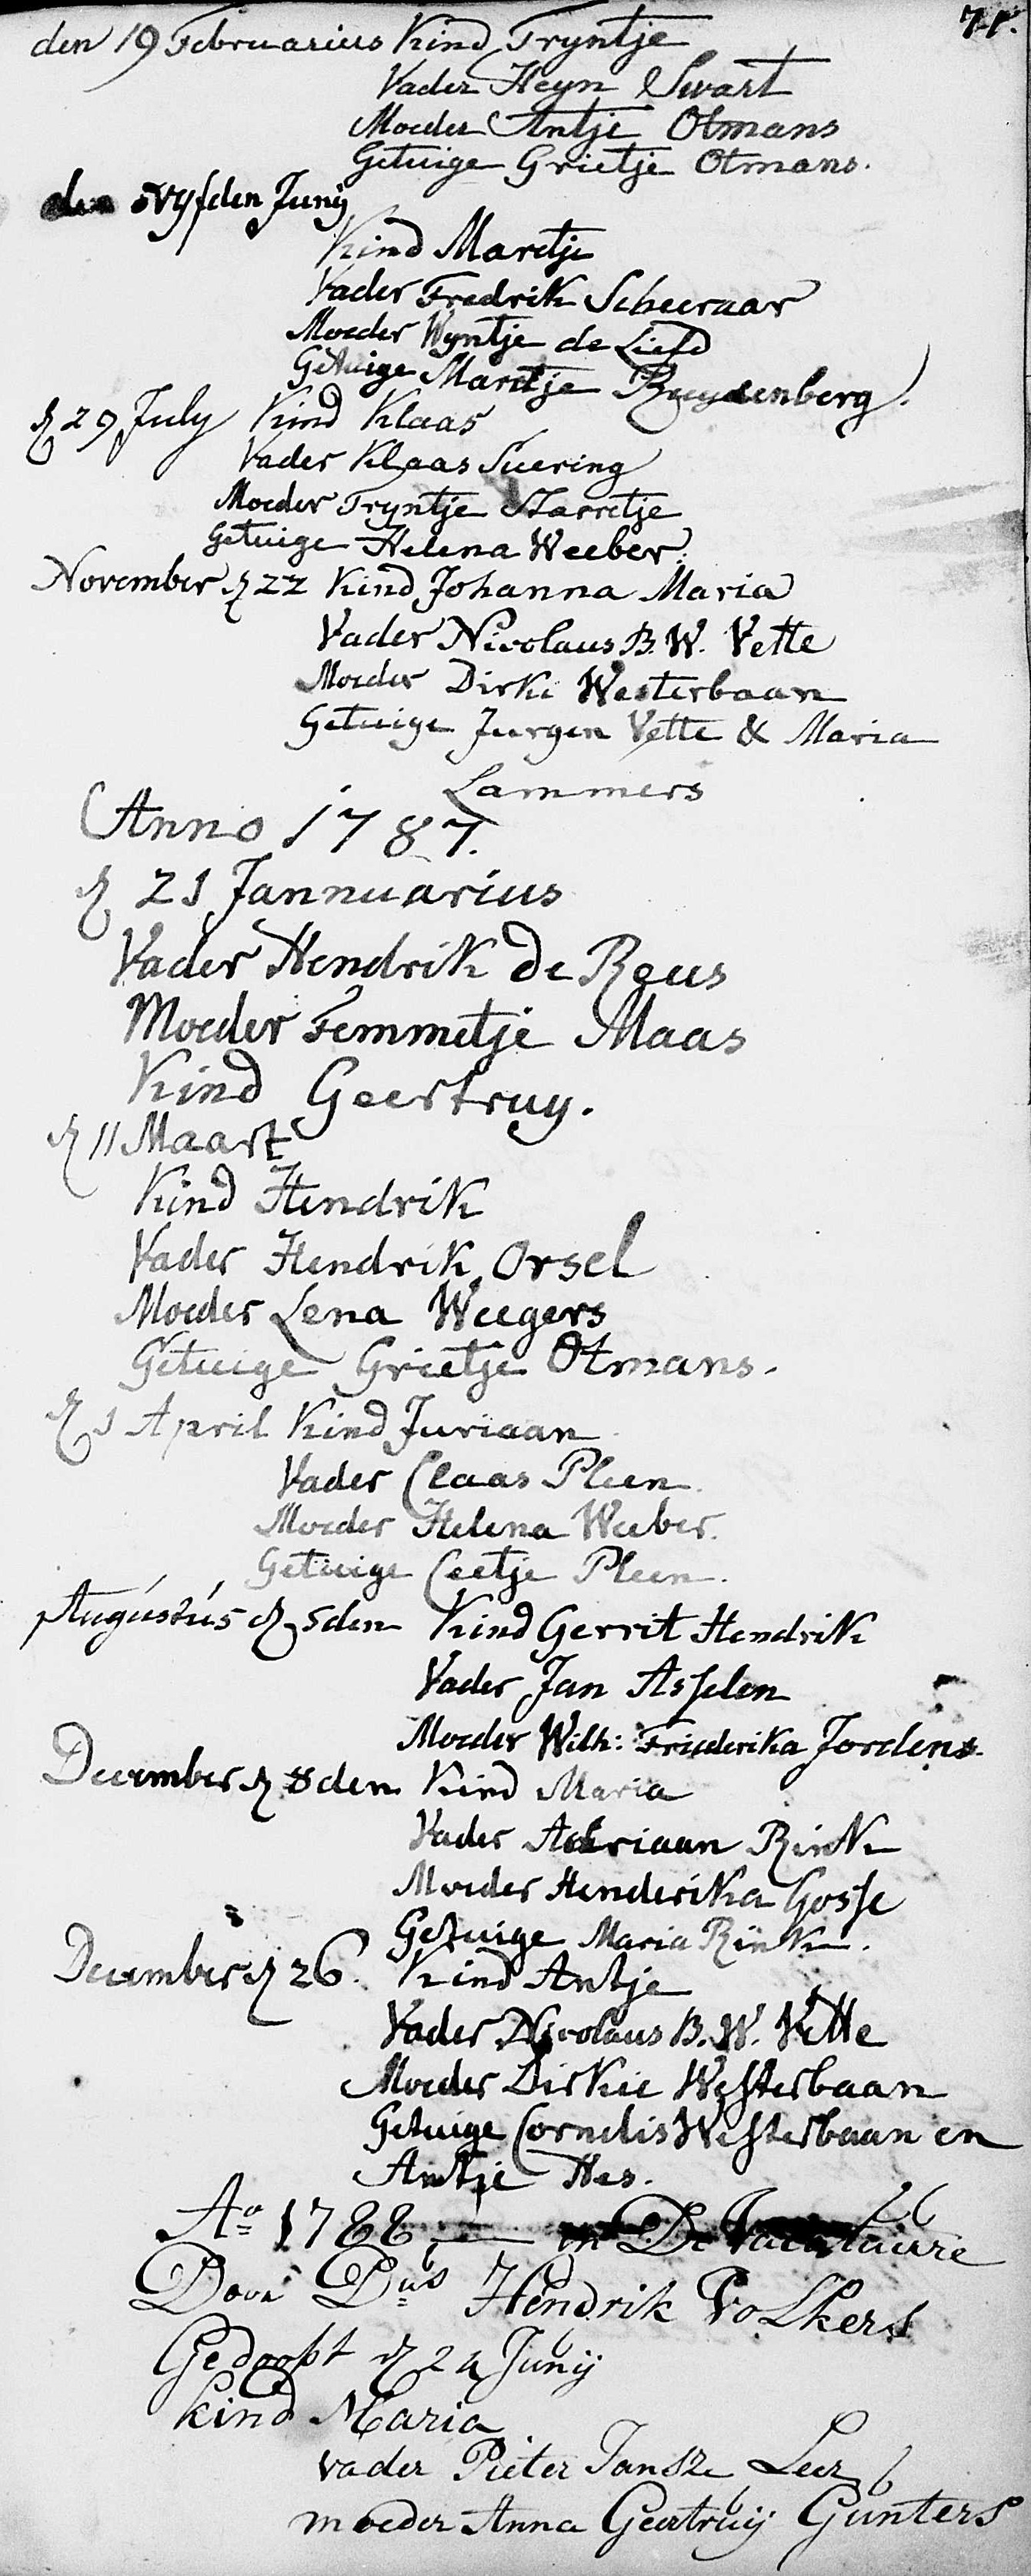 71.
den 19 Februarius Kind Tryntje
Vader Heyn Swart
Moeder Antje Otmans
Getuige Grietje Otmans.
den vyfden Juny
Kind Maretje
Vader Fredrik Scheeraar
Moeder Wyntje de Liefd
Getuige Maretje
d 29 July Kind Klaas
Vader Klaas Suering
Moeder Tryntje Starretje
Getuige Helena Weeber.
November d 22 Kind Johanna Maria
Vader Nicolaus B. W. Vette
Moeder Dirke Westerbaan
Getuige Jurgen Vette & Maria
Lammers
Anno 1787.
d 21 Jannuarius
Vader Hendrik de Reus
Moeder Femmetje Maas
Kind Geertruy.
d 11 Maart
Kind Hendrik
Vader Hendrik Orsel
Moeder Lena Weegers
Getuige Grietje Otmans.
d 1 April Kind Juriaan
Vader Claas Pleen
Moeder Helena Weeber.
Getuige Ceetje Pleen.
Augustus d 5den Kind Gerrit Hendrik
Vader Jan Asselen
Moeder Wilh: Friederika Jordens
December d den Kind Maria
Vader Adriaan Rink
Moeder Henderika Gosse
Getuige Maria Rink.
December d 26. Kind Antje
Vader Nicolaus B. W. Vette
Moeder Dirkie Westerbaan
Getuige Cornelis Westerbaan en
Antje Hes.
Ao 1788 in De Vacatuure
Door Dus Hendrik Volkers
Gedoopt d 24 Junij
Kind Maria
vader Pieter Jansze Leer
moeder Anna Geertruij Gunters